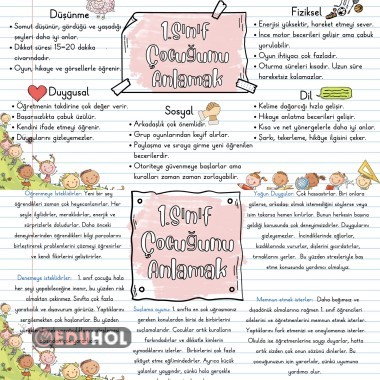 Düşünme
• Somut düşünür, gördüğü ve yaşadığı
şeyleri daha iyi anlar.
• Dikkat süresi 15-20 dakika
civarındadır.
• Oyun, hikaye ve görsellerle öğrenir.
1.Sınıf
Çocuğunu
Anlamak
Fiziksel
• Enerjisi yüksektir, hareket etmeyi sever.
• İnce motor becerileri gelişir ama çabuk
yorulabilir.
• Oyun ihtiyacı çok fazladır.
• Oturma süreleri kısadır. Uzun süre
hareketsiz kalamazlar.
Duygusal
• Öğretmenin takdirine çok değer verir.
• Başarısızlıkta çabuk üzülür.
• Kendini ifade etmeyi öğrenir.
• Duygularını gizleyemezler.
Sosyal
• Arkadaşlık çok önemlidir.
• Grup oyunlarından keyif alırlar.
• Paylaşma ve sıraya girme yeni öğrenilen
becerilerdir.
• Otoriteye güvenmeye başlarlar ama
kuralları zaman zaman zorlayabilir.
Dil
• Kelime dağarcığı hızla gelişir.
• Hikaye anlatma becerileri gelişir.
• Kısa ve net yönergelerle daha iyi anlar.
• Şarkı, tekerleme, hikâye ilgisini çeker.
Öğrenmeye İsteklidirler: Yeni bir şey
öğrendikleri zaman çok heyecanlanırlar. Her
şeyle ilgilidirler, meraklıdırlar, enerjik ve
sürprizlerle doludurlar. Daha önceki
deneyimlerinden öğrendikleri bilgi parçalarını
birleştirerek problemlerini çözmeyi öğrenirler
ve kendi fikirlerini geliştirirler.
1.Sınıf
Çocuğunu
Anlamak
Yoğun Duygular: Çok hassastırlar. Biri onlara
gülerse, arkadaşı olmak istemediğini söylerse veya
isim takarsa hemen kırılırlar. Bunun herkesin başına
geldiği konusunda çok deneyimsizdirler. Duygularını
gizleyemezler. İncindiklerinde ağlarlar,
kızdıklarında vururlar, dişlerini gıcırdatırlar,
tırnaklarını yerler. Bu yüzden stresleriyle baş
etme konusunda yardımcı olmalıyız.
Denemeye isteklidirler: 1. sınıf çocuğu hala
her şeyi yapabileceğine inanır, bu yüzden risk
almaktan çekinmez. Sınıfta çok fazla
yaratıcılık ve deşarvum görürüz. Yaptıklarını
sergilemekten çok hoşlanırlar. Bu yüzden
@EDUHOL
Suçlama oyunu: 1. sınıfta en sık uğraşmamız
gereken konulardan birisi de birbirlerini
suçlamalarıdır. Çocuklar artık kuralların
farkındadırlar ve dikkatle kimlerin
uymadıklarını izlerler. Birbirlerini çok fazla
şikâyet etme eğilimindedirler. Ayrıca Çocuklar
yalnış yaptıklarında, çünkü hala çok gerçekle
Memnun etmek isterler: Daha bağımsız ve
dışadönük olmalarına rağmen 1. sınıf öğrencileri
öğretmenlerini ve ailelerini memnun etmek isterler.
Yaptıklarını fark etmenizi ve onaylamanızı isterler.
Okulla ilgili sizin gördüğünüze duyarlıdırlar, hatta
artık sizden çok onun sözünü dinlerler. Bu
çocuğunuzun için şerefdir, bu yüzden